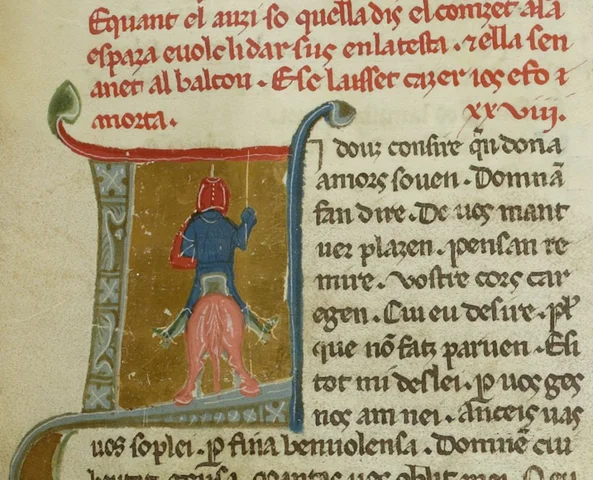 Equant el auzi so quella dis el corret ala
espaza e uolc li dar sus en la testa . z ella sen
anet al balcon . E se laisset cazer ios e fo z
morta . xxviii.
douz consire qm dona
amors souen . Domna
fan dire . De uos mant
uer plazen . pensan re
mire . vostre cors car
egen . Cui eu desire . pl
que no fatz paruen . E si
tot mi deslei . p uos ges
nos am nei . anceis uas
uos soplei . p fina benuolensa . Domne cui